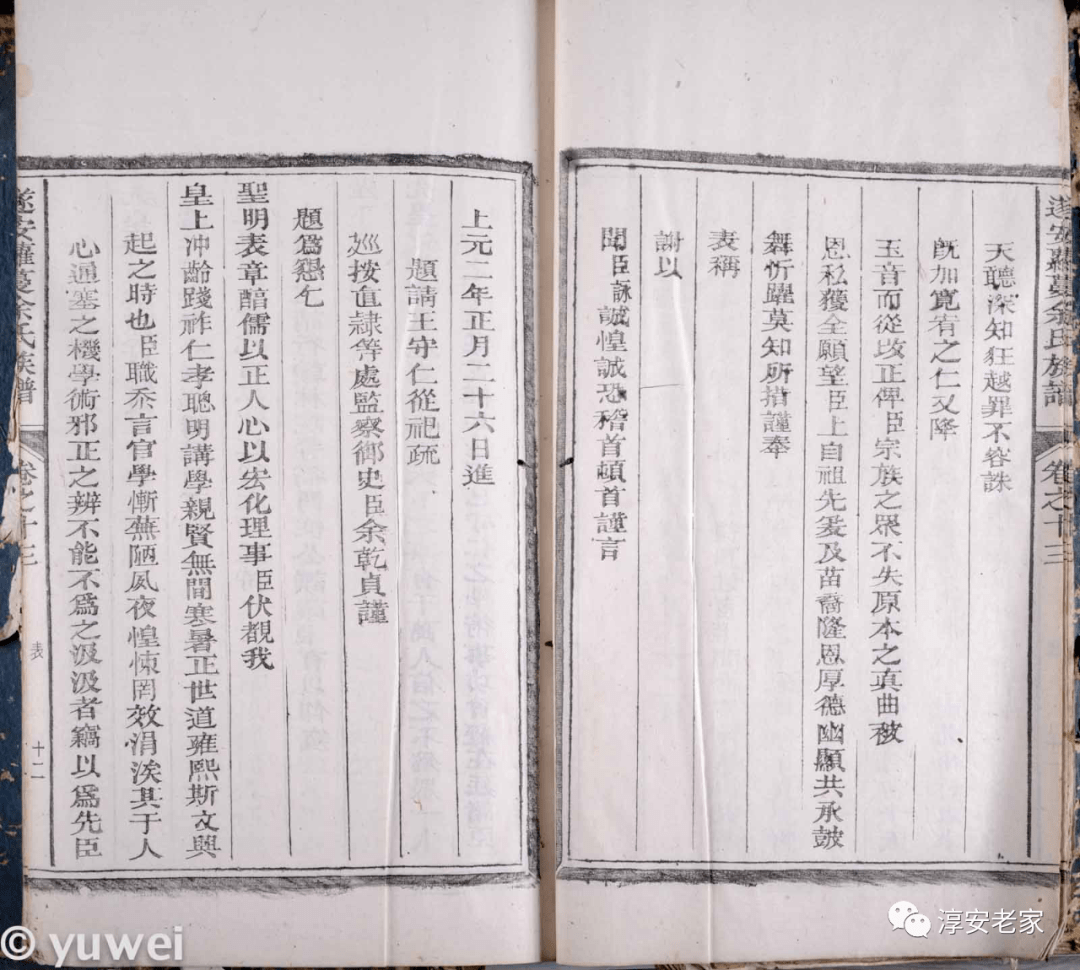 遂安羅蔓余氏族譜 卷之十三
天聽深知狂越罪不容誅
既加寬宥之仁又降
玉音而從改正俾臣宗族之眾不失原本之真曲被
恩私獲全願望臣上自祖先爰及苗裔隆恩厚德幽顯共承鼓
舞忻躍莫知所措謹奉
表稱
謝以
聞臣詠誠惶誠恐稽首頓首謹言
上元二年正月二十六日進
題請王守仁從祀疏
廵按直隷等處監察御史臣余乾貞謹
題爲懇乞
聖明表章醕儒以正人心以宏化理事臣伏覩我
皇上冲齡踐祚仁孝聰明講學親賢無間寒暑正世道雍熙斯文與
起之時也臣職忝言官學慚蕪陋夙夜惶悚罔效涓涘其于人
心通塞之機學術邪正之辨不能不爲之汲汲者竊以爲先臣
遂安羅蔓余氏族譜 卷之十三 表 十二
淳安老家
© yuwei